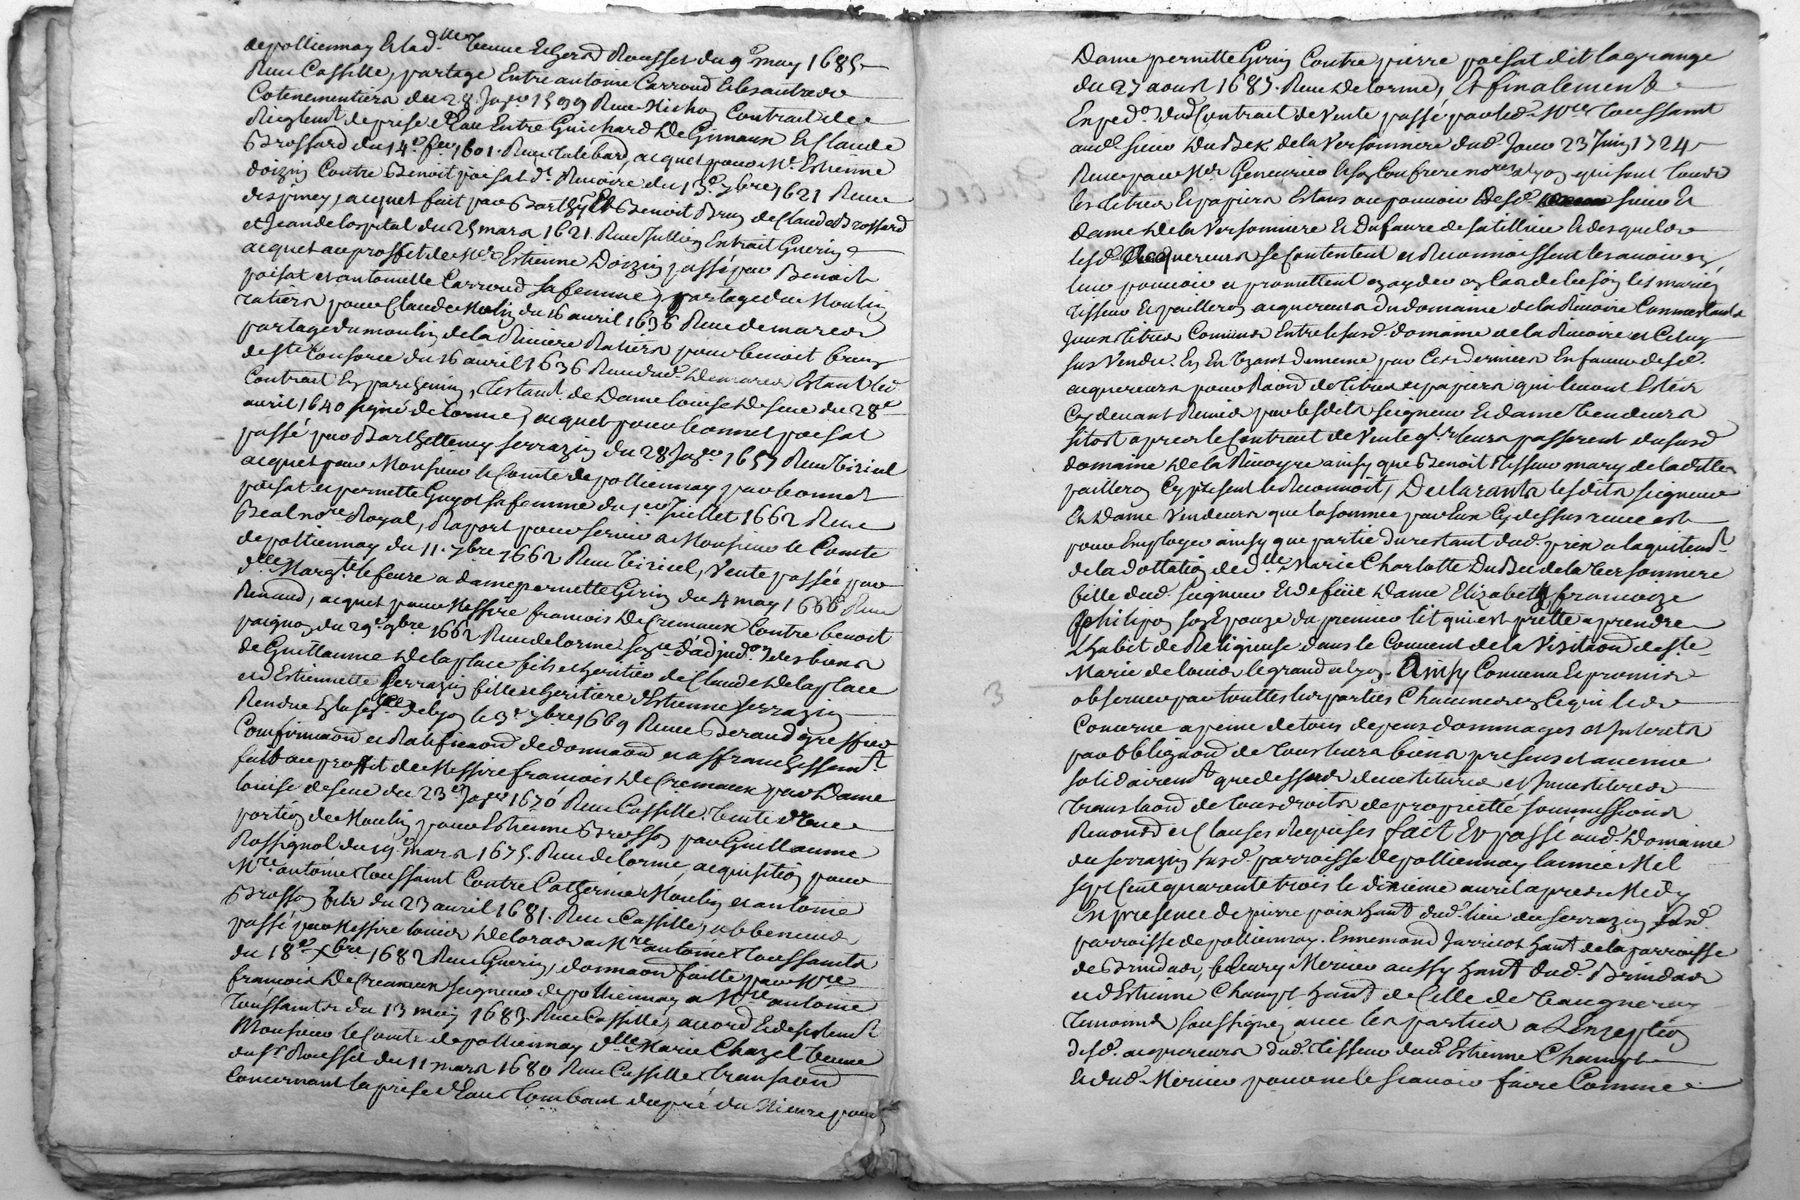 depolliennay & lad.lle veuve & hers Rousset du 9e may 1685
Receu Cassille, partage Entre antoine Carroud & les autres
Cotenementiers du 28 Janer 1599 Receu Contrait de
Reiglemt de prise d'Eau Entre Guichard De Crimaux & Claude
Brossard du 14e feuer 1601. Receu acquet pour Mr Estienne
doizin Contre Benoit poisat dt Riuoire du 13e 7bre 1621 Receu
acquet fait par Barthelly & Benoit Brun de Claude Brossard
et Jean de lospital du 25 mars 1621. Receu Jullien Extrait Guerin
acquet au proffit de Mre Estienne Doizin passé par Benoit
poisat et antoinette Carroud sa femme, partage du Moulin
ratiers pour Claude Molin du 16 auril 1636 Receu demares
partage du moulin de la Riuiere Ratiers pour benoit brun
de ste Consorce du 16 auril 1636 Receu dud. Demares Estant led.
Contrait En parchemin, testamt de Dame louise De seue du 28e
auril 1640 signé delorme, acquet pour bonnet poisat
passé par Barthellemy serrazin du 28 Janer 1657 Receu tiriuel
acquet pour Monsieur le Comte de polliennay par bonnet
poisat et pernette Guyot sa femme du 1er Juillet 1662 Receu
Beal nore Royal, Raport pour seruir a Monsieur le Comte
de polliennay du 11. 7bre 1662 Receu tiriuel, Vente passée par
dlle Margte lefeure a dame pernette Girin du 4 may 1666 Receu
Renaud, acquet pour Messire francois De Cremaux Contre benoit
poignon du 29e 9bre 1662 Receu delorme d'adjudon des biens
de Guillaume Delaplace fils & heritier de Claude Delaplace
et d'Estiennette serrazin fille & heritiere d'Estienne serrazin
Rendue En la de lyon le 3e 7bre 1669 Receu Beraud greffier
Confirmaon et Ratificaon de donnaon et affranchissemt
fait au proffit de Messire francois De Cremaux par Dame
louise deseue du 23e Janer 1670 Receu Cassille, Vente d'une
portion de Moulin pour Estienne Brosson par Guillaume
Rossignol du 19e mars 1675. Receu delorme, acquisition pour
Mre antoine toussaint Contre Catherine Moulin et antoine
Brosson du 23 auril 1681. Receu Cassille, abbeneuis
passé par Messire louis De loras a Mre antoine toussaints
du 18e Xbre 1682 Receu Guerin, donnaon faitte par Mre
francois De Creamux seigneur de polliennay a Mre antoine
toussaints du 13 may 1683. Receu Cassille, acord & desistemt
Monsieur le Comte de polliennay dlle Marie Chazel veuve
du sr Rousset du 11 mars 1680 Receu Cassille transaon
Concernant la prise d'Eau tombant du pré du Viuier pour
Dame pernette Girin Contre pierre poisat dit lagrange
du 27 aoust 1685. Receu Delorme, Et finalement
Exped.on dud Contrait de Vente passé par led. Mre toussaint
aud. sieur Du Bek de la Versonniere dud. Jour 23 Juin 1724
Receu par Mer Geneurier & son Confrere nores a lyon qui sont tous
les titres & papiers Estans au pouuoir Desd. sieur Et
Dame De la Versonniere & Dufaure de satillieu & desquels
lesd. acquereurs se Contentent et Reconnoissent les auoir en
leur pouuoir et promettent en ayder en Cas de besoin les mariés
tisseur & pailleron acquereurs du domaine de la Riuoire Comme étant
Jceux titres Communs Entre le susd. domaine de la Riuoire et Celuy
sus Vendu. En En Vzant de meme par Ces derniers En faueur desd.
acquereurs pour Raon de titres & papiers qui leur ont Estés
Cy deuant Remis par lesdits seigneur & dame Vendeurs
sitost apres le Contrait de Vente qu'ils leurs passerent du susd.
domaine De la Riuoyre ainsy que Benoit tisseur mary de la ditte
pailleron Cy present le Reconnoit, Declarants lesdits seigneur
Et Dame Vendeurs que la somme par Eux Cy dessus receue est
pour Employer ainsy que partie du restant dud. prix a laquitemt
de la dottation de dlle Marie Charlotte Du Bec de la Versonniere
fille dud. seigneur & de feüe Dame Elizabeth francoize
philipon son Epouze du premier lit qui est prette a prendre
L'habit de Religieuse dans le Couuent de la Visitaon de ste
Marie de louis le grand a lyon. Ainsy Conuenu & promis
obseruer par touttes les parties Chacune en Ce qui les
Concerne a peine de tous depens dommages et Jnterets
par Obligaon de tous leurs biens presens et auenir
solidairemt que dessus deuestitures et Jnuestitures
translaon de tous droits de proprieté soumissions
Renonon & Clauses Requises fait Et passé aud. Domaine
du serrazin susd. parroisse De polliennay l'année Mil
sept Cent quarente trois le dixieme auril apres Midy
En presence de pierre poix hant dud. lieu du serrazin susd.
parroisse de polliennay. Ennemond Jarricot hant de la parroisse
de Brindas, fleury Merieu aussy hant dud. Brindas
et d'Estienne Champt hant de Celle de Vaugneray
temoins soussignés auec les parties a L'Exception
desd. acquereurs dud. tisseur dud. Estienne Champt
& dud. Merieu pour ne le scauoir faire Comme